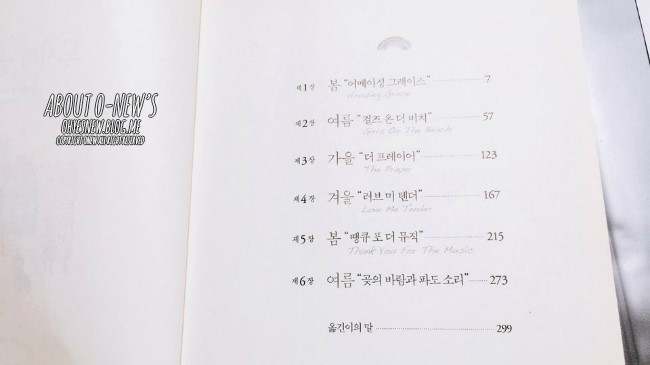 ABOUT O-NEW'S
OHYESNEW.BLOG.ME
제1장 봄 "어메이징 그레이스" 7
Amazing Grace
제2장 여름 "걸즈 온 더 비치" 57
Girls On The Beach
제3장 가을 "더 프레이어" 123
The Prayer
제4장 겨울 "러브 미 텐더" 167
Love Me Tender
제5장 봄 "땡큐 포 더 뮤직" 215
Thank You For The Music
제6장 여름 "곶의 바람과 파도 소리" 273
옮긴이의 말 299